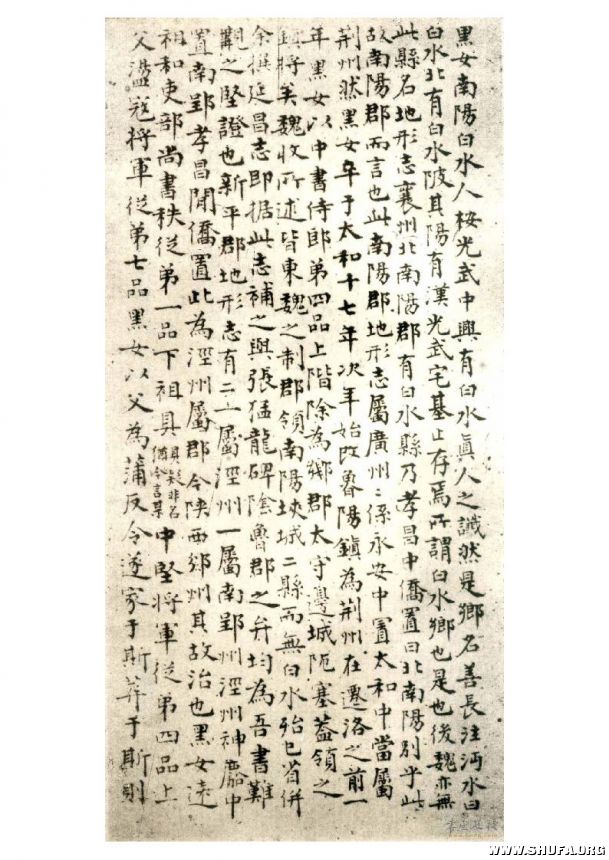 黑女南陽白水人桉光武中興有白水真人之讖然是鄉名善長注沔水曰
白水北有白水陂其陽有漢光武宅基止存焉所謂白水鄉也是也後魏亦無
此縣名地形志襄州北南陽郡有白水縣乃孝昌中僑置曰北南陽別乎此
故南陽郡而言也此南陽郡地形志屬廣州〻係永安中置太和中當屬
荆州然黑女卒于太和十七年次年始改魯陽鎮為荆州在遷洛之前一
年黑女以中書侍郎第四品上階除為鄉郡太守邊城阨塞蓋領之
鎮將矣魏收所述皆東魏之制郡領南陽埉城二縣而無白水殆已省併
余撰延昌志即據此志補之與張猛龍碑陰魯郡之弁均為吾書難
覯之堅證也新平郡地形志有二一屬涇州一屬南郢州涇州神䴥中
置南郢孝昌閒僑置此為涇州屬郡今陝西邠州其故治也黑女遠
祖和吏部尚書秩從第一品下祖具具疑非名猶今言某中堅將軍從第四品上
父盪寇將軍從第七品黑女以父為蒲反令遂家于斯葬于斯則
WWW.SHUFA.ORG